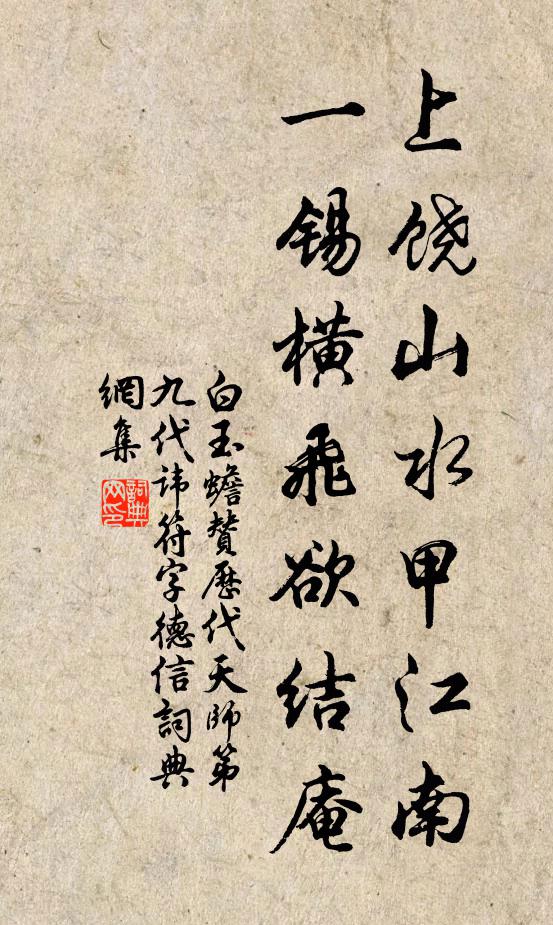 上饶山水甲江南
一锡横飛欲结庵
白玉蟾贊歷代天師第
九代諱符字德信詞典
網集
詞典
网印